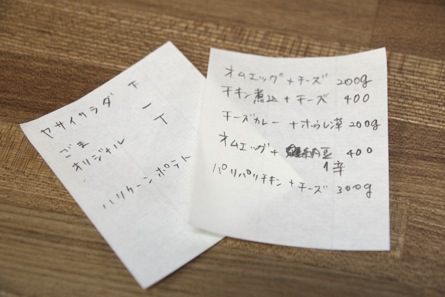 ヤサイサラダ 下
ごま 一
オリジナル 丅
ハリケーンポテト
オムエッグ+チーズ 200g
チキン煮込+チーズ 400
チーズカレー +ホウレン草 200g
オムエッグ+ 納豆 400
1辛
パリパリチキン+チーズ 300g